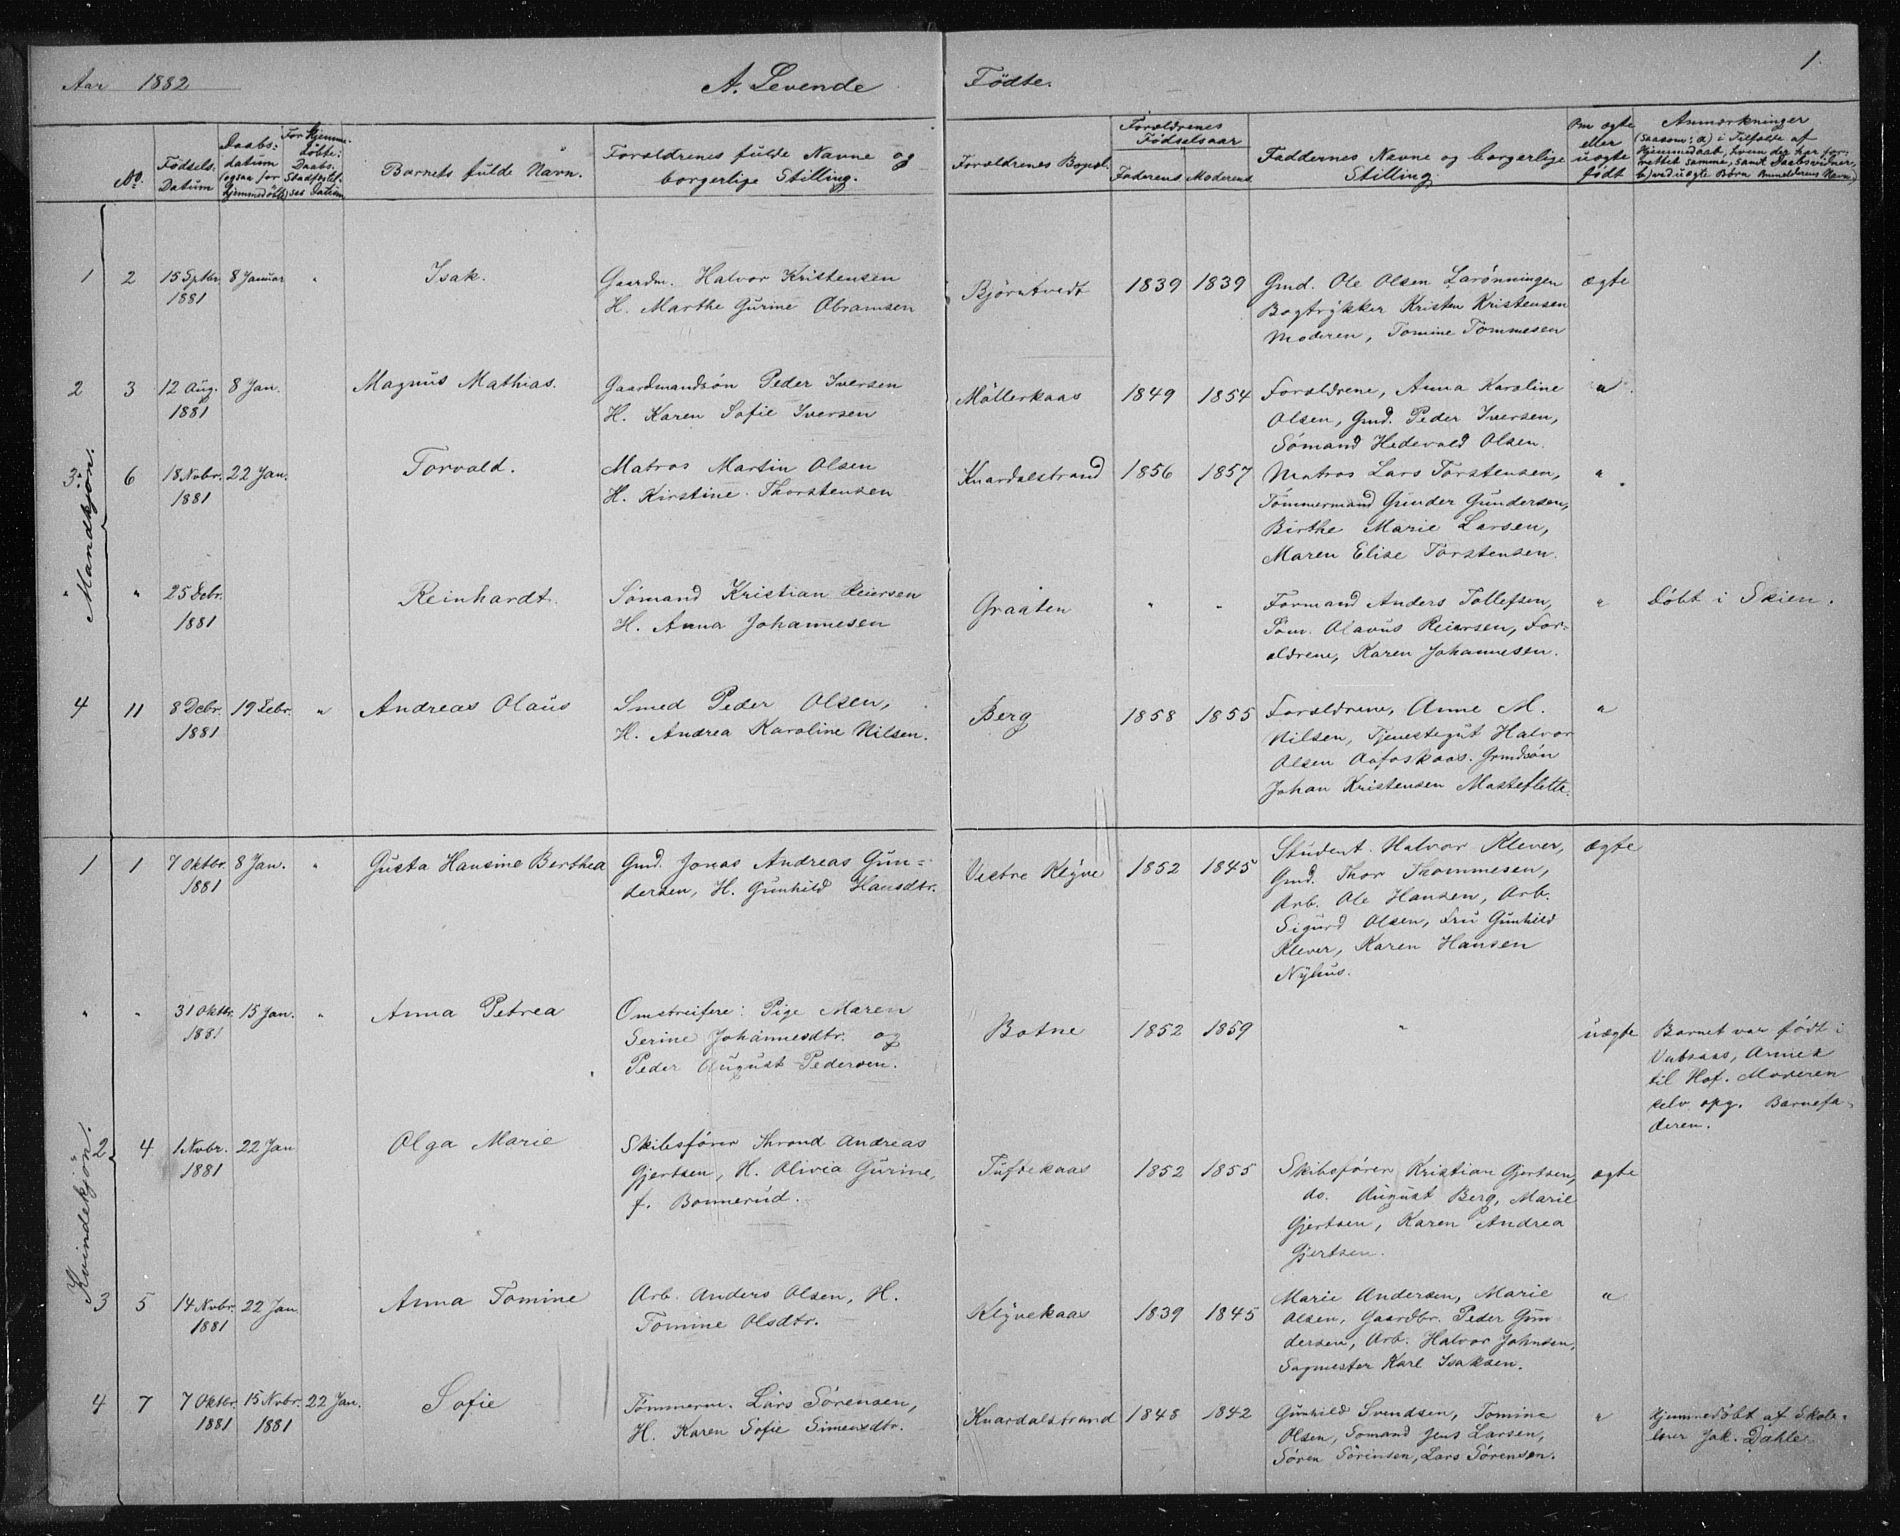 Aar 1882 A. Levende Fødte. 1.
No.
Fødsels-
Datum
Daabs-
datum
(ogsaa for
Hjemmedøbte)
For Hjemme-
døbte:
Daabs-
Stadfæstel-
ses Datum
Barnets fulde Navn.
Forældrenes fulde Navne og
borgerlige Stilling.
Forældrenes Bopæl.
Forældrenes
Fødselsaar
Faderens Moderens
Faddernes Navne og borgerlige
Stilling.
Om ægte
eller
uægte
født
Anmærkninger
(saasom: a) i Tilfælde af
Hjemmedaab, hvem der har for-
rettet samme, samt Daabsvidner,
b) ved uægte Børn Anmelderens Navn)
Mandkjøn.
1 2 15 Sptbr. 8 Januar " Isak.
1881
Gaardm. Halvor Kristensen
H. Marthe Gurine Abramsen
Bjørntvedt 1839 1839
Gmd. Ole OlsenЛарønningen
Bogtrykker Kristen Kristensen
Moderen, Tomine Tommesen
ægte
2 3 12 Aug. 8 Jan. Magnus Mathias.
1881
Gaardmandsøn Peder Iversen
H. Karen Sofie Iversen
Møllerkaas 1849 1854
Forældrene, Anna Karoline
Olsen, Gmd. Peder Iversen,
Sømand Hedevald Olsen.
"
3 6 18 Nvbr. 22 Jan. Torvald.
1881
Matros Martin Olsen
H. Kirstine Thorstensen
Knardalstrand 1856 1857
Matros Lars Torstensen,
Tømmermand Gunder Gundersen,
Birthe Marie Larsen,
Maren Elise Torstensen.
"
" " 25 Debr. Reinhardt.
1881
Sømand Kristian Reiersen
H. Anna Johannesen
Graaten " "
Formand Anders Tollefsen,
Søm. Olavus Reiersen, For-
ældrene, Karen Johannesen.
" Døbt i Skien.
4 11 8 Debr. 19 Febr. " Andreas Olaus
1881
Smed Peder Olsen,
H. Andrea Karoline Nilsen.
Berg 1858 1855
Forældrene, Anne M.
Nilsen, Tjenestegut Halvor
Olsen Aafoskaas. Grmdsøn
Johan Kristensen Masteflette.
"
Kvindekjøn.
1 1 7 Oktbr. 8 Jan. " Gusta Hansine Berthea
1881
Gmd. Jonas Andreas Gun-
dersen, H. Gunhild Hansdtr.
Vestre Klyve 1852 1845
Student Halvor Klever,
Gmd. Thor Thommesen,
Arb. Ole Hansen, Arb.
Sigurd Olsen, Fru Gunhild
Klever, Karen Hansen
Nyhus.
ægte
" " 31 Oktbr. 15 Jan. " Anna Petrea
1881
Omstreifere: Pige Maren
Serine Johannesdtr. og
Peder August Pedersen.
Botne 1852 1859
"
uægte
Barnet var født i
Vabsaas, Annex
til Hof. Moderen
selv opg. Barnefa-
deren.
2 4 1 Nvbr. 22 Jan Olga Marie
1881
Skibsfører Thrond Andreas
Gjertsen, H. Olivia Gurine,
f. Bonnerud.
Tuftekaas 1852 1855
Skibsfører Kristian Gjertsen,
do. August Berg, Marie
Gjertsen, Karen Andrea
Gjertsen.
ægte
3 5 14 Nvbr. 22 Jan. Anna Tomine
1881
Arb. Anders Olsen, H.
Tomine Olsdtr.
Klyvekaas 1839 1845
Marie Andersen, Marie
Olsen, Gaardbr. Peder Gun-
dersen, Arb. Halvor Johnsen,
Sagmester Karl Isaksen.
"
4 7 7 Oktbr. 15 Nvbr. 22 Jan. Sofie
1881 1881
Tømmerm. Lars Sørensen,
H. Karen Sofie Simensdtr.
Knardalstrand 1848 1842
Gunhild Svendsen, Tomine
Olsen, Sømand Jens Larsen,
Søren Sørensen, Lars Sørensen.
"
Hjemmedøbt af Skole-
lærer Jak. Dahle